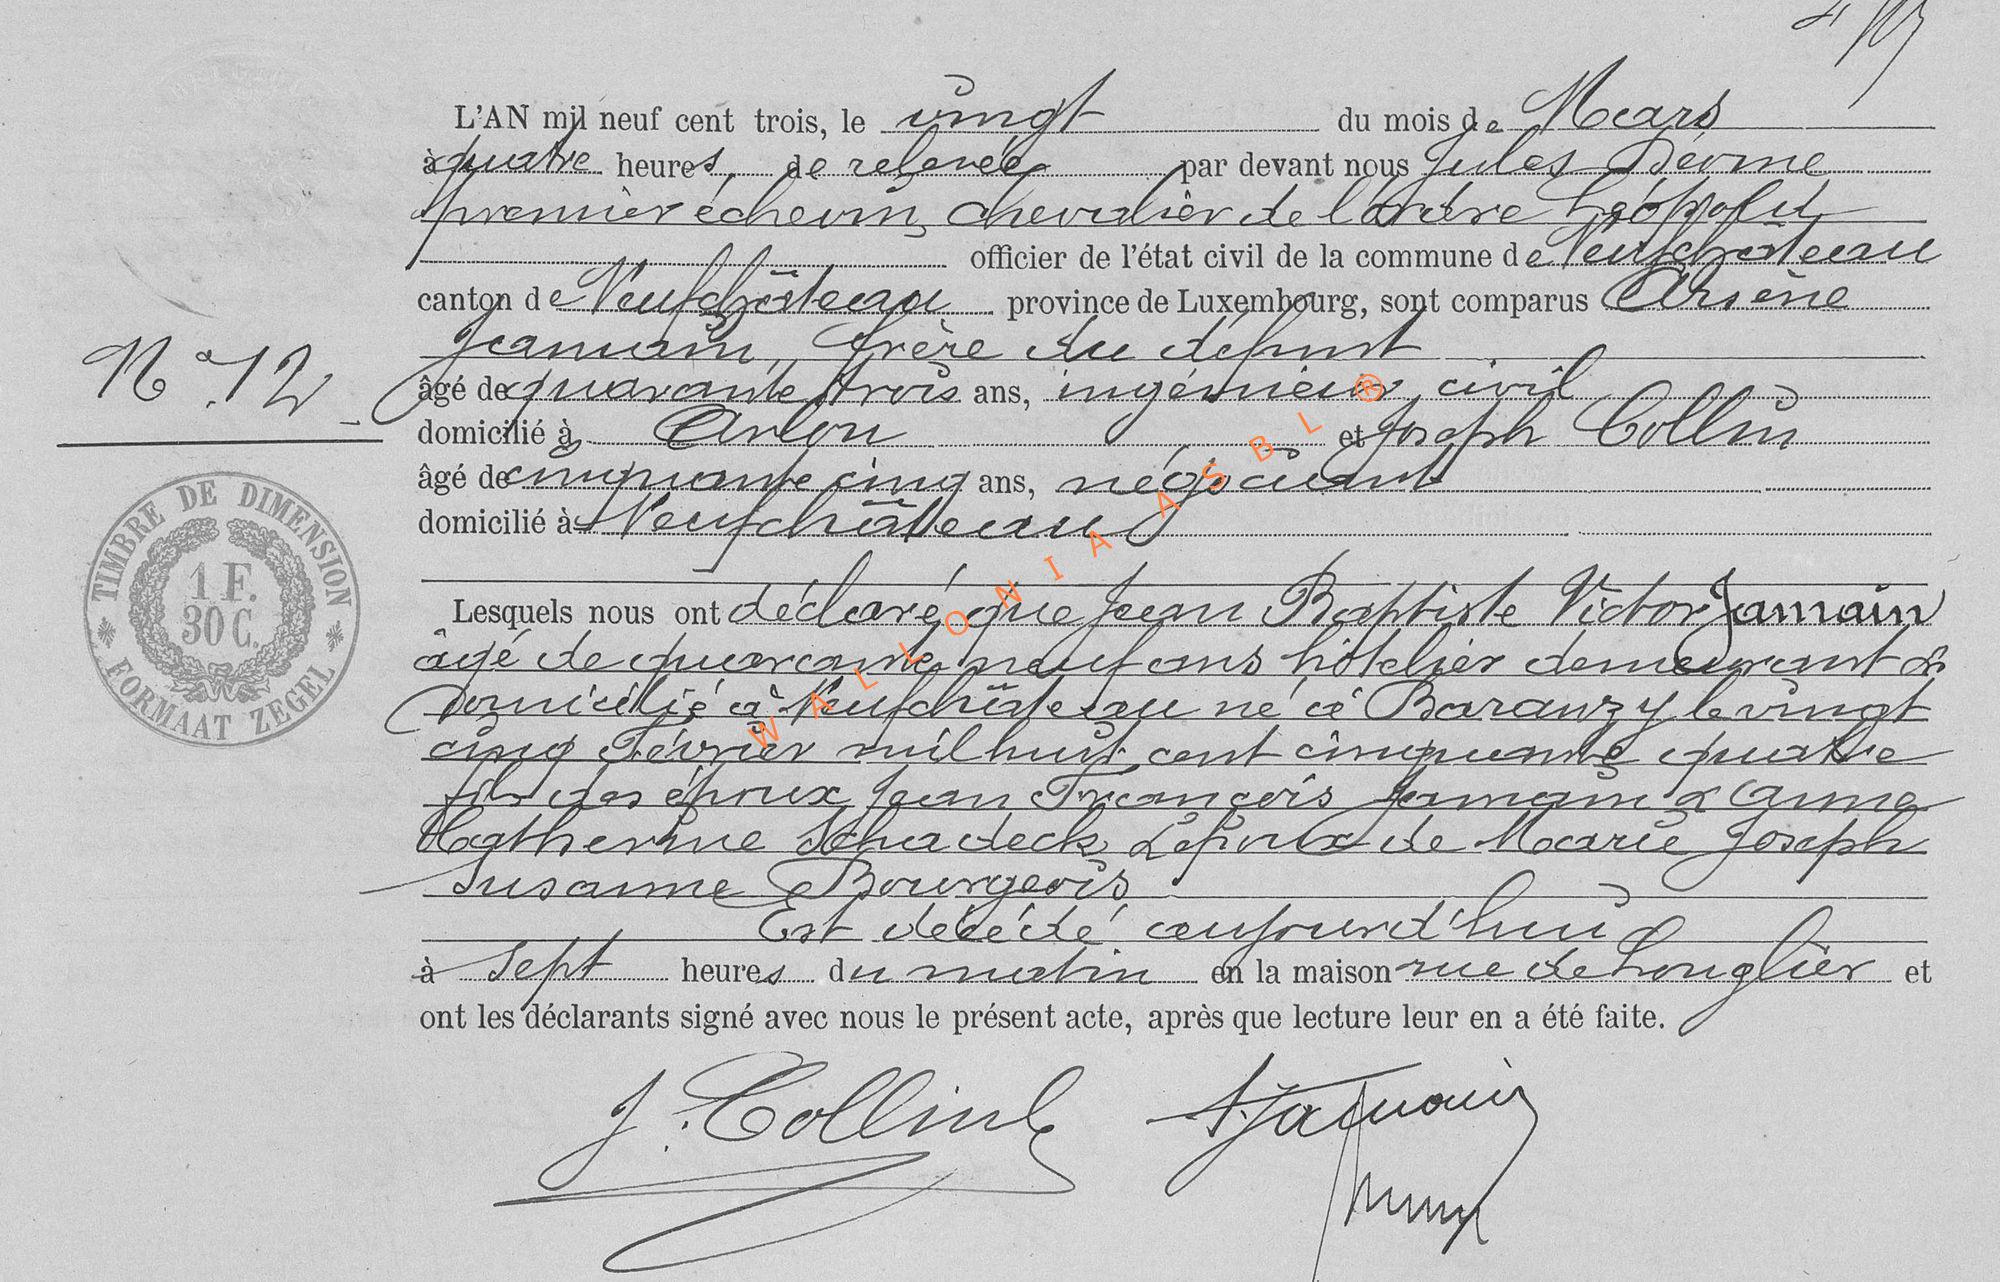 L'AN mil neuf cent trois, le vingt du mois de Mars
à quatre heures de relevée par devant nous Jules
premier échevin, chevalier de l'ordre Léopold
officier de l'état civil de la commune de Neufchâteau
canton de Neufchâteau province de Luxembourg, sont comparus Arsène
Jamain, frère du défunt
âgé de quarante trois ans, ingénieur civil
N° 12
domicilié à Arlon et Joseph Collin
âgé de cinquante cinq ans, négociant
domicilié à Neufchâteau
Lesquels nous ont déclaré que Jean Baptiste Victor Jamain
âgé de quarante neuf ans hôtelier demeurant &
domicilié à Neufchâteau né à Baranzy le vingt
cinq Février mil huit cent cinquante quatre
fils des époux Jean François Jamain & Anne
Catherine Schadeck, Epoux de Marie Joseph
Susanne Bourgeois
Est décédé aujourd'hui
à sept heures du matin en la maison rue de Longlier et
ont les déclarants signé avec nous le présent acte, après que lecture leur en a été faite.
J. Collin
A. Jamain
TIMBRE DE DIMENSION
1 F.
30 C.
FORMAAT ZEGEL
WALLONIA ASBL ®